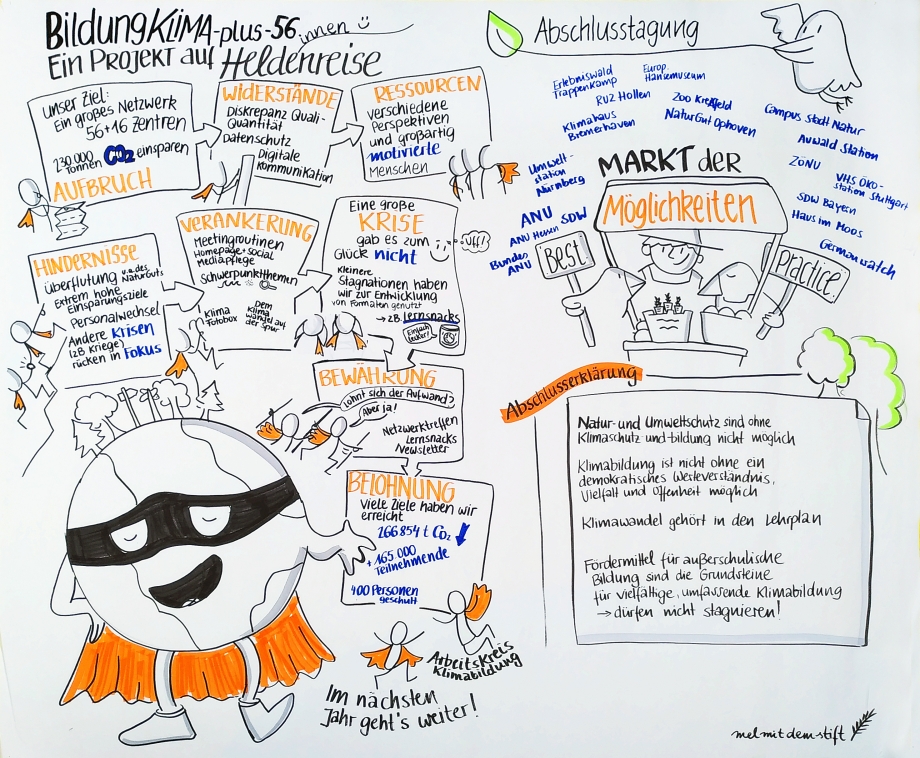 BildungKlima-plus-56
innen
Ein Projekt auf Heldenreise
unser Ziel:
Ein großes Netzwerk
56+16 Zentren
230.000
Tonnen CO2 einsparen
AUFBRUCH
WIDERSTÄNDE
Diskrepanz Quali-
Quantität
Datenschutz
Digitale
Kommunikation
RESSOURCEN
verschiedene
Perspektiven
und großartig
motivierte
Menschen
HINDERNISSE
Überflutung v.a. des
Naturguts
Extrem hohe
Einsparungsziele
Personalwechsel
Andere Krisen
(zB Kriege)
rücken in Fokus
VERANKERUNG
Meetingroutinen
Homepage + social
Mediapflege
Schwerpunktthemen
Klima
Fotobox
Dem
Klima
wandel auf
der Spur
Eine große
KRISE
gab es zum
Glück nicht
uff!
Kleinere
Stagnationen haben
wir zur Entwicklung
von Formaten genutzt
→ z.B. Lernsnacks
Einfach
lecker!
BEWÄHRUNG
Lohnt sich der Aufwand?
Aber ja!
Netzwerktreffen
Lernsnacks
Newsletter
BELOHNUNG
Viele Ziele haben wir
erreicht
266854 t CO2
+ 165.000
Teilnehmende
400 Personen
geschult
Arbeitskreis
Klimabildung
Im nächsten
Jahr geht's weiter!
Abschlusstagung
Erlebniswald
Trappenkamp
Europ.
Hansemuseum
RUZ Hollen
Zoo Krefeld
Klimahaus
Bremerhaven
NaturGut Ophoven
Campus Stadt Natur
Auwald Station
ZÖNU
VHS Öko-
station Stuttgart
SDW Bayern
Haus im Moos
Germanwatch
Umwelt-
station
Nürnberg
ANU SDW
ANU Hessen
Bundes
ANU
MARKT der
Möglichkeiten
Best
Practice.
Abschlusserklärung
Natur- und Umweltschutz sind ohne
Klimaschutz und -bildung nicht möglich
Klimabildung ist nicht ohne ein
demokratisches Werteverständnis,
Vielfalt und Offenheit möglich
Klimawandel gehört in den Lehrplan
Fördermittel für außerschulische
Bildung sind die Grundsteine
für vielfältige, umfassende Klimabildung
→ dürfen nicht stagnieren!
mel mit dem stift